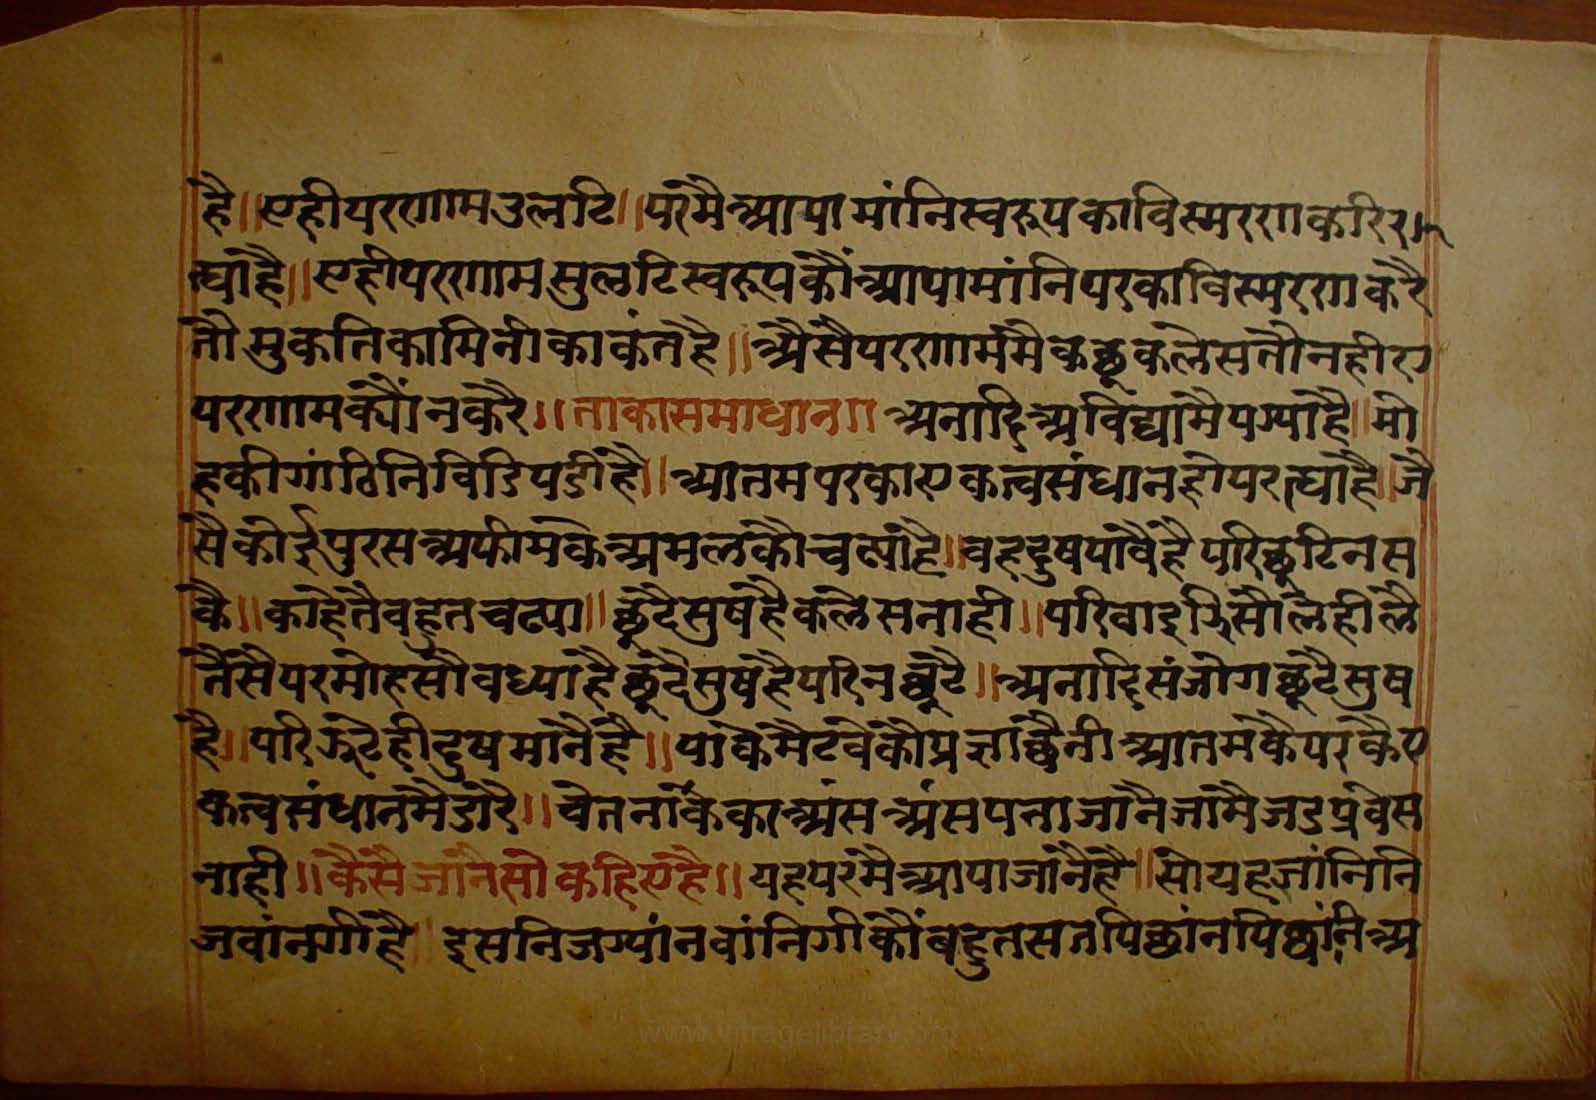 है॥ एही परणाम उलटि॥ परमै आपा मांनि स्वरूप का विस्मरण करि र
ह्या है॥ एही परणाम सुलटि स्वरूप कौं आपा मांनि पर का विस्मरण करै
तौ मुकति कामिनी का कंत है॥ अैसै परणाम मै कछू कलेस तौ नही ए
परणाम क्यौं न करै॥ ताका समाधान॥ अनादि अविद्या मै पग्या है॥ मो
ह की गांठि निविडि पडी है॥ आतम पर का एकत्व संधान होय रह्या है॥ जै
सै कोई पुरस अफीम के अमल कौ चढ्या है॥ वह दुष पावै है परि छूटि न स
कै॥ काहे तै बहुत चढ्या॥ छूटै सुष है कलेस नाही॥ परि वाइडि सौ लै ही लै
तैसै पर मोह सौ बध्या है छूटै सुष है परि न छूटै॥ अनादि संजोग छूटै सुष
है॥ परि झूठे ही दुष मानै है॥ याके मेटवे कौ प्रज्ञा छैनी आतम कै पर कै ए
कत्व संधान मै डारै॥ चेतना के का अंस अंस पना जानै जामै जड प्रवेस
नाही॥ कैसै जांनै सो कहिए है॥ यह पर मै आपा जांनै है॥ सो यह जांनि नि
ज वांनगी है॥ इस निज ग्यांन वांनिगी कौं बहुत सत पिछांन पिछांनि अ
www.vitragelibrary.org